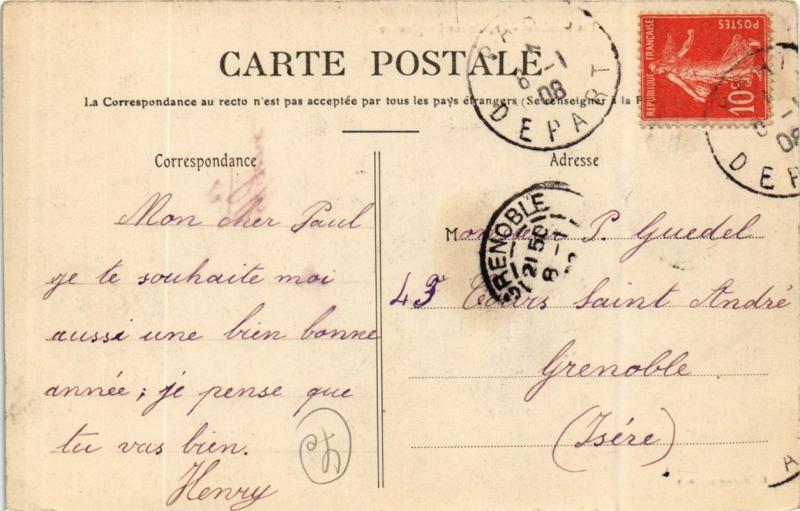 CARTE POSTALE
La Correspondance au recto n'est pas acceptée par tous les pays étrangers (Se renseigner à la
Correspondance
Adresse
Mon cher Paul
je te souhaite moi
aussi une bien bonne
année; je pense que
tu vas bien.
Henry
Monsieur P. Guedel
Cours Saint André
Grenoble
(Isére)
REPUBLIQUE FRANÇAISE
POSTES
10c
PARIS
8 - 1
08
DEPART
GRENOBLE
21 50
8 - 1
08
DEP